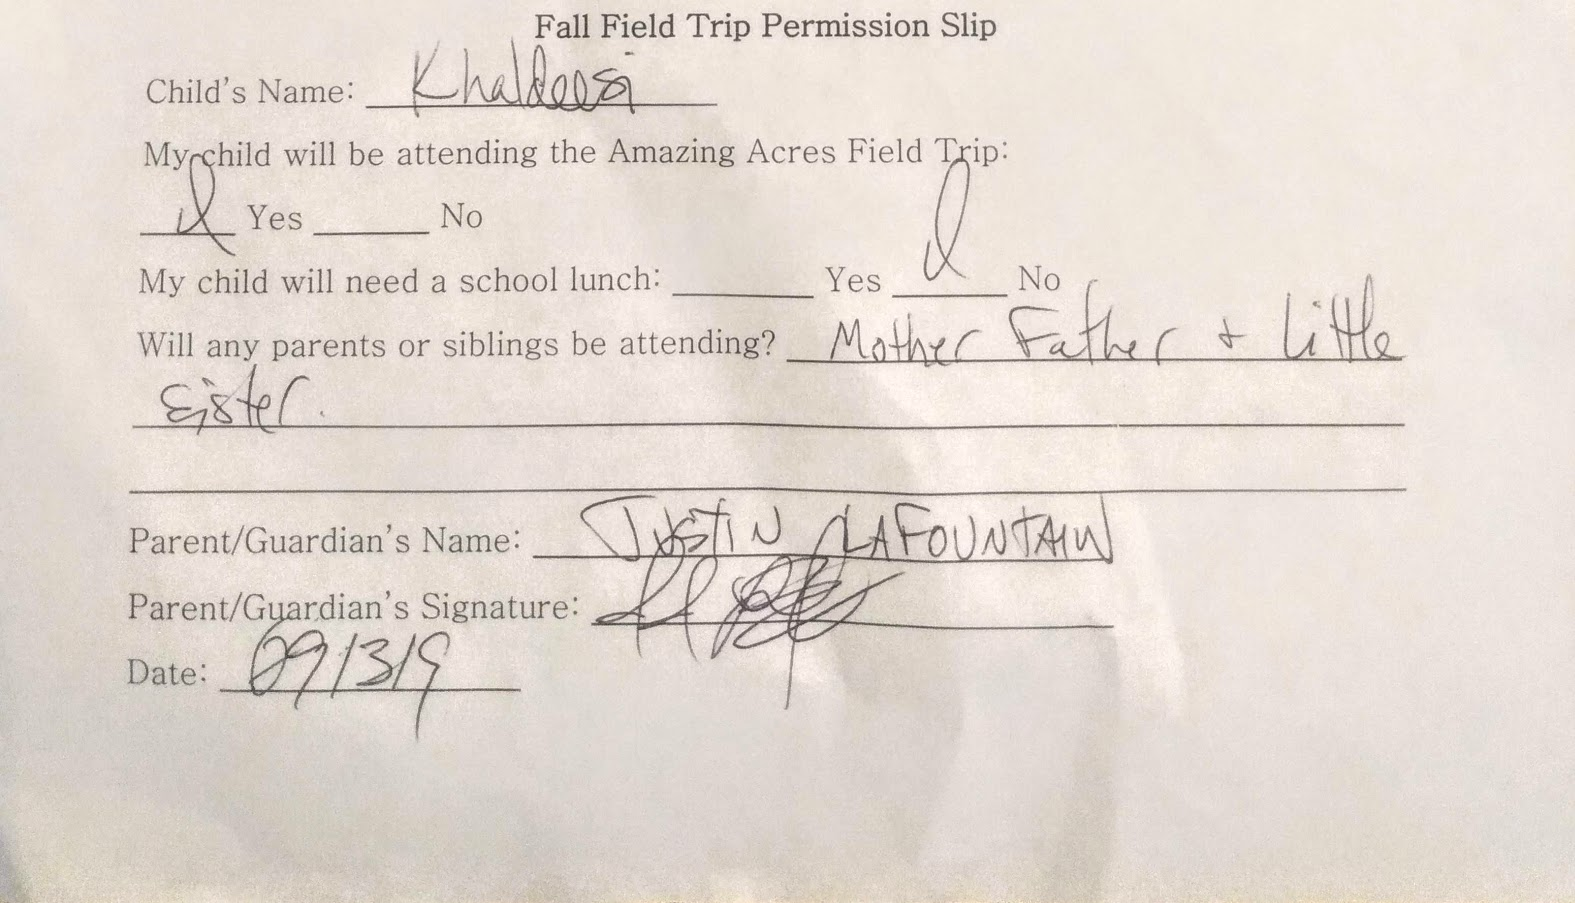 Fall Field Trip Permission Slip
Child's Name: Khaldeesi
My child will be attending the Amazing Acres Field Trip:
Yes No
My child will need a school lunch: Yes No
Will any parents or siblings be attending? Mother Father + Little
Sister.
Parent/Guardian's Name: JUSTIN LAFOUNTAIN
Parent/Guardian's Signature:
Date: 09/3/9